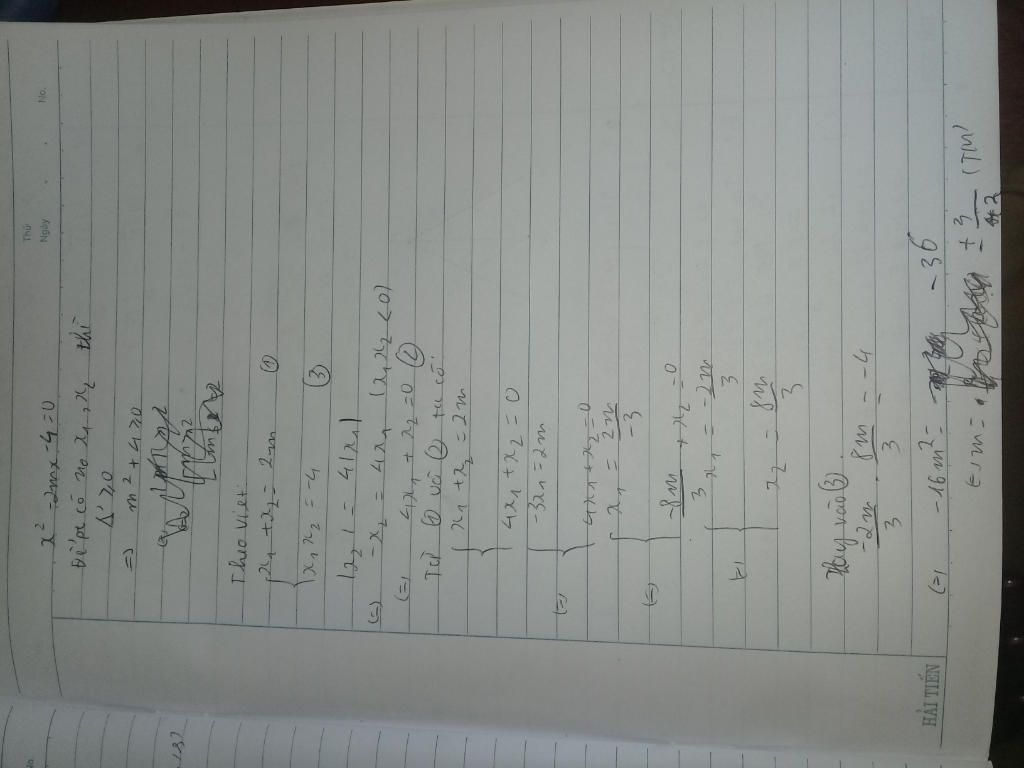 Thứ
Ngày
No.
x² - 2mx - 4 = 0
Để pt có no x₁, x₂ thì
Δ' ≥ 0
=> m² + 4 ≥ 0
Theo Viet:
{ x₁ + x₂ = 2m ①
{ x₁x₂ = -4 ③
|x₂| = 4|x₁|
(=) -x₂ = 4x₁ (x₁x₂ < 0)
(=) 4x₁ + x₂ = 0 ②
Từ ① và ② ta có
{ x₁ + x₂ = 2m
{ 4x₁ + x₂ = 0
(=) { -3x₁ = 2m
{ 4x₁ + x₂ = 0
(=) { x₁ = 2m/-3
{ -8m/3 + x₂ = 0
(=) { x₁ = -2m/3
{ x₂ = 8m/3
Thay vào ③
-2m/3 . 8m/3 = -4
(=) -16m² = -36
(=) m = ± 3/2 (TM)
HẢI TIẾN